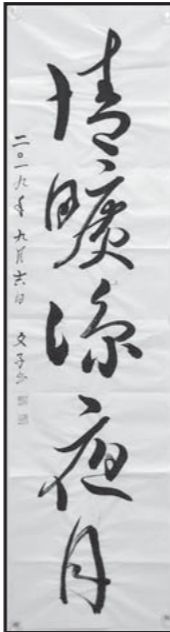 清曠涼夜月
二〇一九年九月六日 文子书